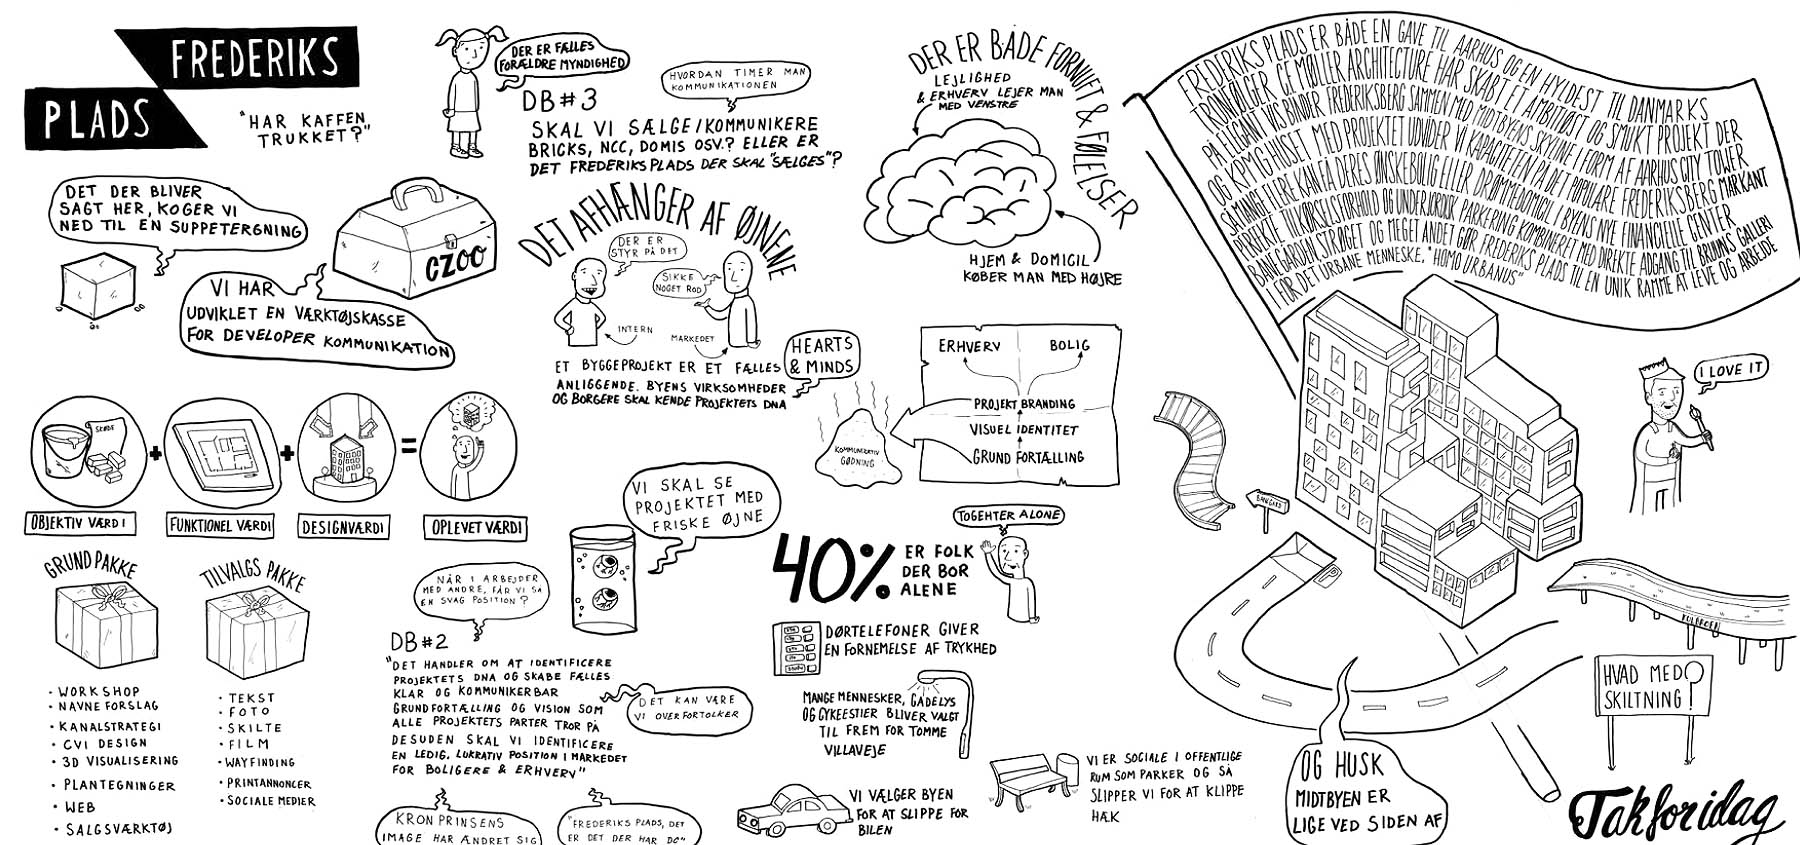 FREDERIKS
PLADS
"HAR KAFFEN
TRUKKET?"
DER ER FÆLLES
FORÆLDRE MYNDIGHED
DB#3
HVORDAN TIMER MAN
KOMMUNIKATIONEN
SKAL VI SÆLGE/KOMMUNIKERE
BRICKS, NCC, DOMIS OSV.? ELLER ER
DET FREDERIKS PLADS DER SKAL "SÆLGES"?
DET DER BLIVER
SAGT HER, KOGER VI
NED TIL EN SUPPETERGNING
CZOO
VI HAR
UDVIKLET EN VÆRKTØJSKASSE
FOR DEVELOPER KOMMUNIKATION
DET AFHÆNGER AF ØJNENE
DER ER
STYR PÅ DET
SIKKE
NOGET ROD
INTERN
MARKEDET
HEARTS
& MINDS
ET BYGGEPROJEKT ER ET FÆLLES
ANLIGGENDE. BYENS VIRKSOMHEDER
OG BORGERE SKAL KENDE PROJEKTETS DNA
DER ER BÅDE FORNUFT & FØLELSER
LEJLIGHED
& ERHVERV LEJER MAN
MED VENSTRE
HJEM & DOMICIL
KØBER MAN MED HØJRE
ERHVERV
BOLIG
PROJEKT BRANDING
VISUEL IDENTITET
GRUND FORTÆLLING
KOMMUNIKATIV
GØDNING
FREDERIKS PLADS ER BÅDE EN GAVE TIL AARHUS OG EN HYLDEST TIL DANMARKS
TRONFØLGER. CF MØLLER ARCHITECTURE HAR SKABT ET AMBITIØST OG SMUKT PROJEKT DER
PÅ ELEGANT VIS BINDER FREDERIKSBERG SAMMEN MED MIDTBYENS SKYLINE I FORM AF AARHUS CITY TOWER
OG KPMG HUSET. MED PROJEKTET UDVIDER VI KAPACITETEN PÅ DET POPULÆRE FREDERIKSBERG MARKANT
SÅ MANGE FLERE KAN FÅ DERES ØNSKEBOLIG ELLER DRØMMEDOMICIL I BYENS NYE FINANCIELLE CENTER
DIREKTE TILKØRSELSFORHOLD OG UNDERJORDISK PARKERING KOMBINERET MED DIREKTE ADGANG TIL BRUUNS GALLERI
BANEGÅRDEN, STRØGET OG MEGET ANDET GØR FREDERIKS PLADS TIL EN UNIK RAMME AT LEVE OG ARBEJDE
I FOR DET URBANE MENNESKE, "HOMO URBANUS"
I LOVE IT
SKØDE
OBJEKTIV VÆRDI
FUNKTIONEL VÆRDI
DESIGNVÆRDI
OPLEVET VÆRDI
+
+
=
GRUND PAKKE
• WORKSHOP
• NAVNE FORSLAG
• KANALSTRATEGI
• CVI DESIGN
• 3D VISUALISERING
• PLANTEGNINGER
• WEB
• SALGSVÆRKTØJ
TILVALGS PAKKE
• TEKST
• FOTO
• SKILTE
• FILM
• WAYFINDING
• PRINTANNONCER
• SOCIALE MEDIER
NÅR I ARBEJDER
MED ANDRE, FÅR VI SÅ
EN SVAG POSITION?
DB#2
"DET HANDLER OM AT IDENTIFICERE
PROJEKTETS DNA OG SKABE FÆLLES
KLAR OG KOMMUNIKERBAR
GRUNDFORTÆLLING OG VISION SOM
ALLE PROJEKTETS PARTER TROR PÅ
DESUDEN SKAL VI IDENTIFICERE
EN LEDIG, LUKRATIV POSITION I MARKEDET
FOR BOLIGERE & ERHVERV"
VI SKAL SE
PROJEKTET MED
FRISKE ØJNE
DET KAN VÆRE
VI OVERFORTOLKER
KRONPRINSENS
IMAGE HAR ÆNDRET SIG
"FREDERIKS PLADS, DET
ER DET DER HAR DO"
40% ER FOLK
DER BOR
ALENE
TOGEHTER ALONE
DØRTELEFONER GIVER
EN FORNEMELSE AF TRYKHED
MANGE MENNESKER, GADELYS
OG CYKEESTIER BLIVER VALGT
TIL FREM FOR TOMME
VILLAVEJE
VI VÆLGER BYEN
FOR AT SLIPPE FOR
BILEN
VI ER SOCIALE I OFFENTLIGE
RUM SOM PARKER OG SÅ
SLIPPER VI FOR AT KLIPPE
HÆK
BANEGÅRD
HVAD MED
SKILTNING?
OG HUSK
MIDTBYEN ER
LIGE VED SIDEN AF
Tak for i dag